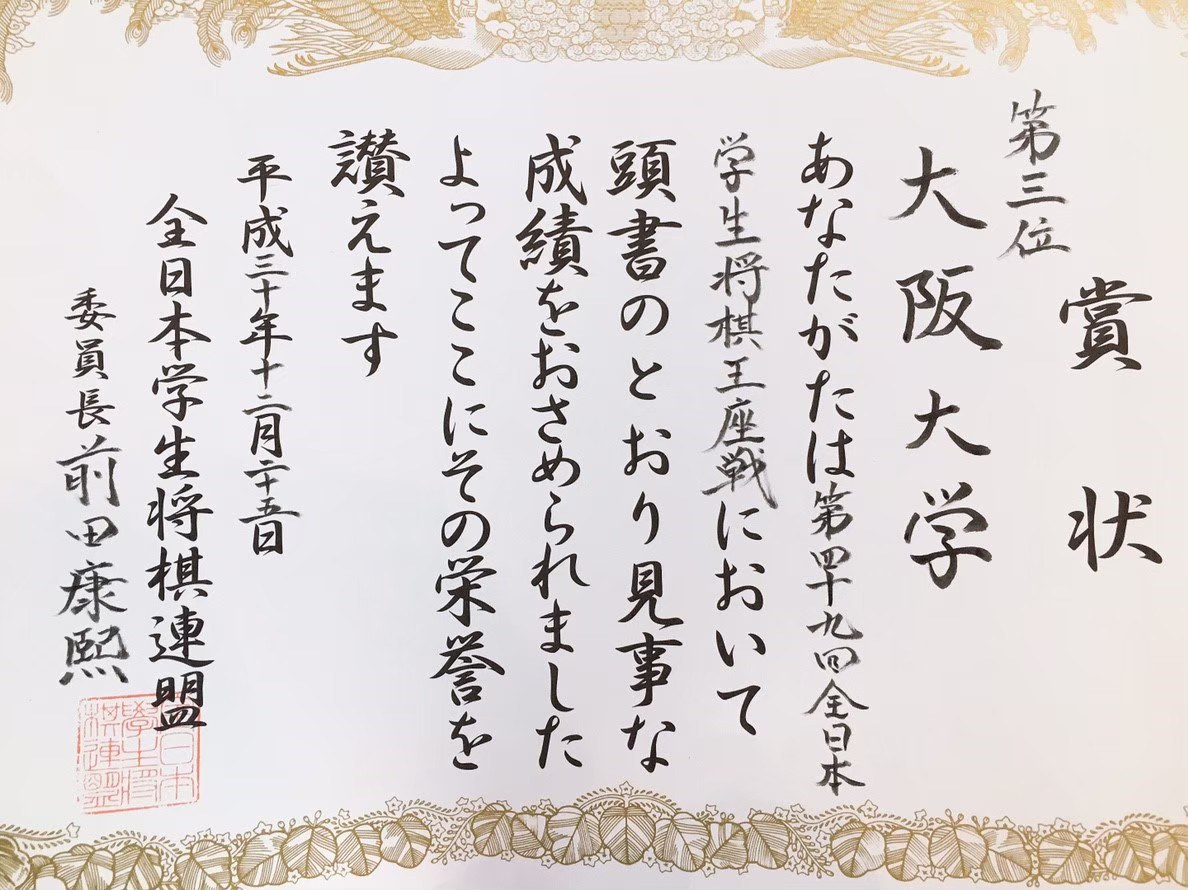 賞状
第三位
大阪大学
あなたがたは第四十九回全日本
学生将棋王座戦において
頭書のとおり見事な
成績をおさめられました
よってここにその栄誉を
讃えます
平成三十年十二月二十五日
全日本学生将棋連盟
委員長前田康熙
日本
學生将
棋連盟